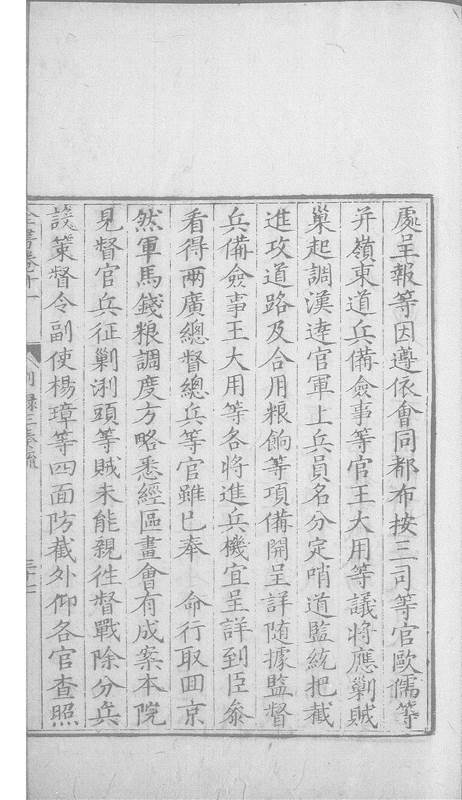 處呈報等因遵依會同都布按三司等官歐儒等
并嶺東道兵備僉事等官王大用等議將應剿賊
巢起調漢達官軍土兵員名分定哨道監統把截
進攻道路及合用粮餉等項備開呈詳隨據監督
兵備僉事王大用等各將進兵機宜呈詳到臣叅
看得兩廣總督總兵等官雖已奉　命行取囬京
然軍馬錢粮調度方略悉經區畫會有成案本院
見督官兵征剿浰頭等賊未能親徃督戰除分兵
設策督令副使楊璋等四面防截外仰各官查照
全書卷十一　別錄三奏疏